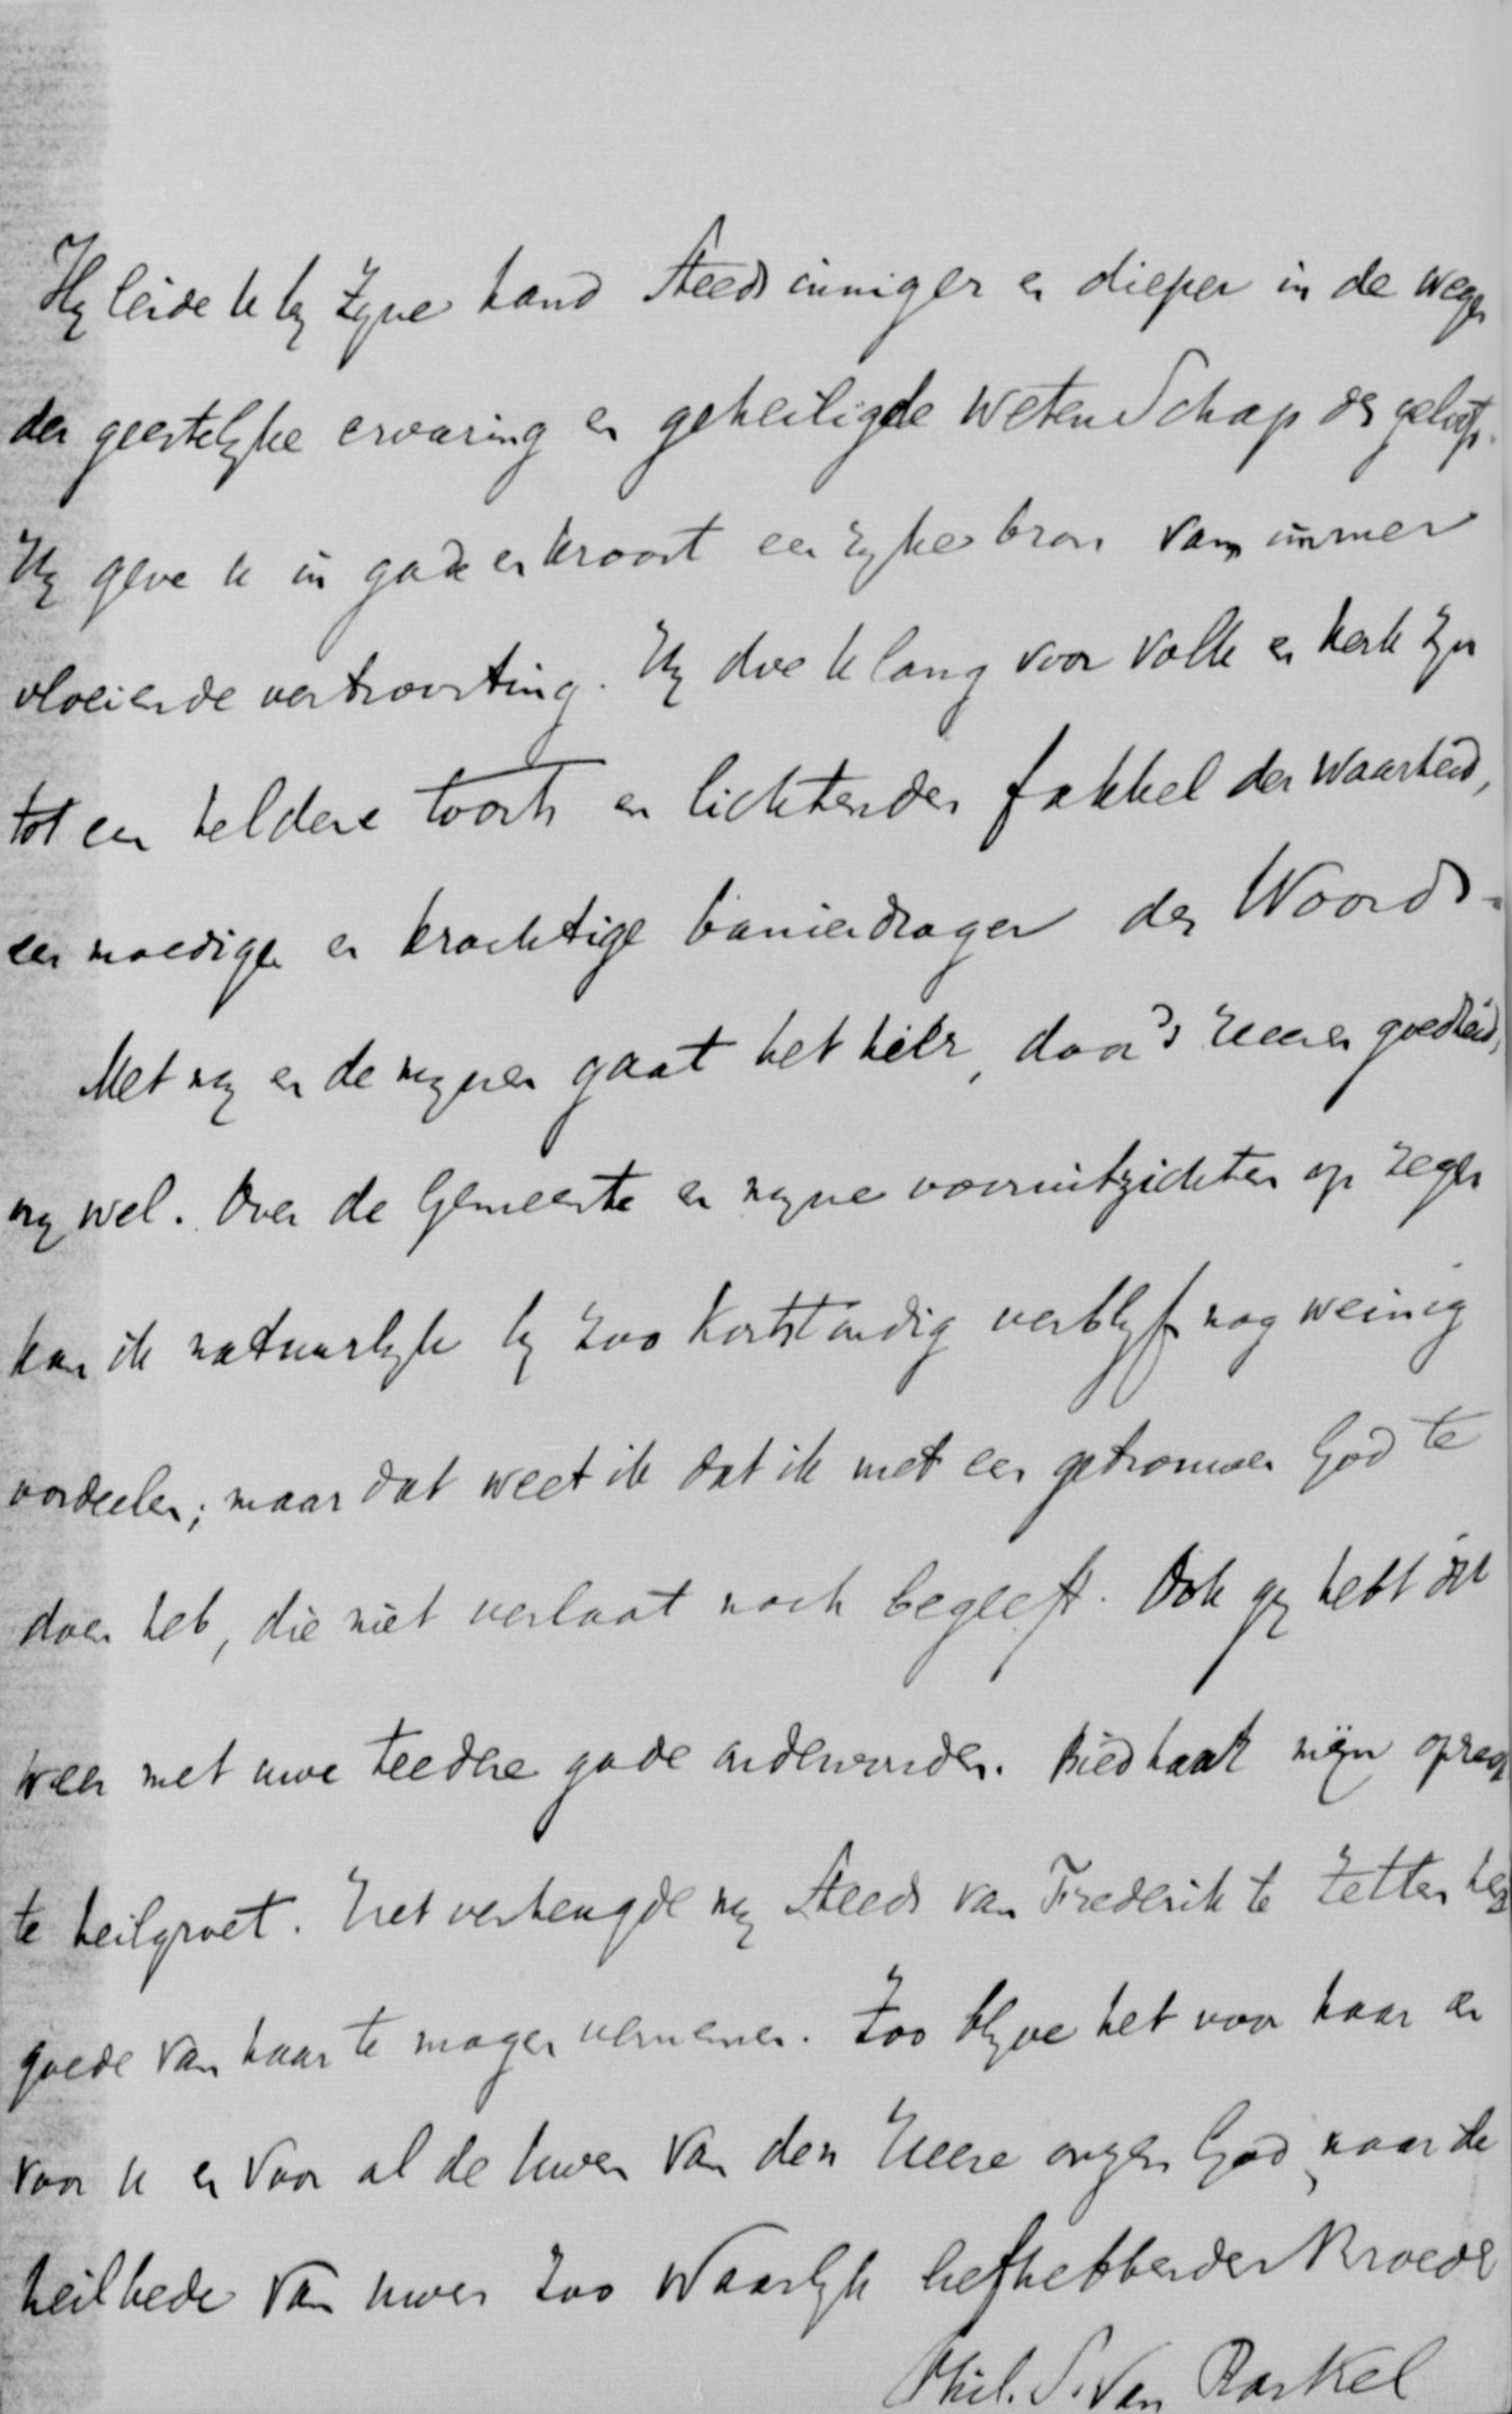 Hy leide U by Zyne hand steeds inniger en dieper in de wegen
der geestelyke ervaring en geheiligde wetenschap des geloofs.
Hy geve U in gade en kroost een ryke bron van immer
vloeiende vertroosting. Hy doe U lang voor Volk en Kerk zyn
tot een heldere toorts en lichtenden fakkel der Waarheid,
een moedige en krachtige banierdrager des Woords.
Met my en de mynen gaat het hier, door 's Heeren goedheid,
nog wel. Over de Gemeente en myne vooruitzichten op zegen
kan ik natuurlyk by zoo kortstondig verblyf nog weinig
oordeelen; maar dat weet ik dat ik met een getrouwen God te
doen heb, die niet verlaat noch begeeft. Ook gy hebt dit
weer met uwe teedre gade ondervonden. Bied haar mijn opreg
te heilgroet. Het verheugde my steeds van Frederik te Zetten het
goede van haar te mogen vernemen. Zoo blyve het voor haar en
voor U en voor al de Uwen van den Heere onzen God, naar de
heilbede van Uwen zoo waarlyk liefhebbenden Broeder
Phil. S. van Ronkel